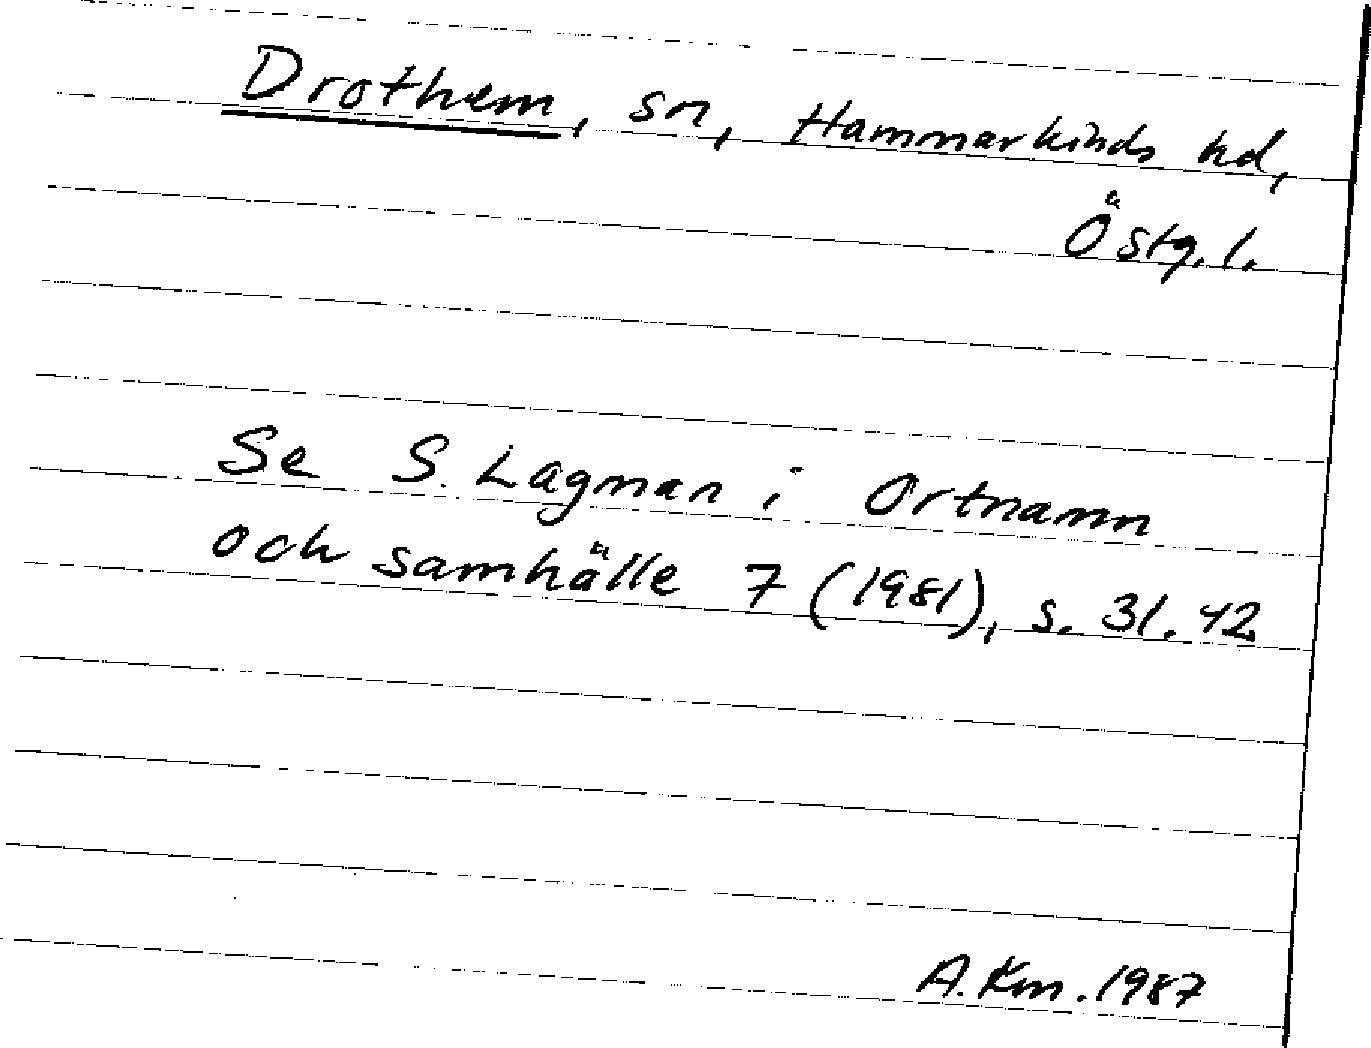 Drothem, sn, Hammarkinds hd,
Östg. l.
Se S. Lagman i Ortnamn
och samhälle 7 (1981), s. 31. 42
A. Km. 1987